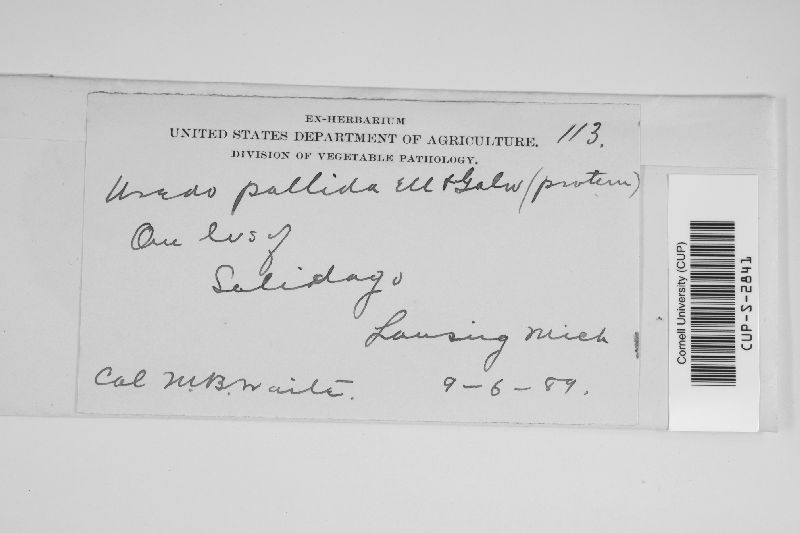 EX-HERBARIUM
UNITED STATES DEPARTMENT OF AGRICULTURE. 113.
DIVISION OF VEGETABLE PATHOLOGY.
Uredo pallida Ell & Galw (protem)
On lvs of
Solidago
Lansing Mich
Col M.B. Waite. 9-6-89.
Cornell University (CUP)
CUP-S-2841